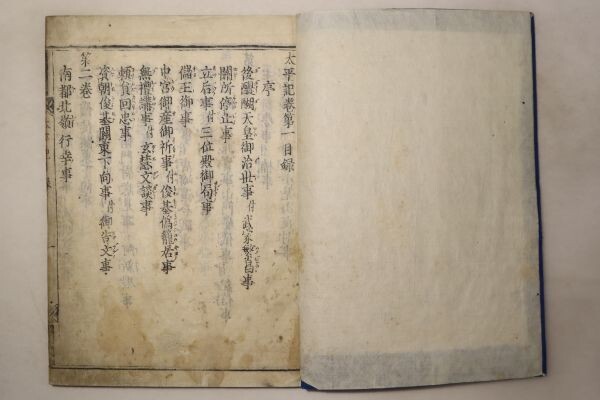 太平記巻第一目録
序
後醍醐天皇御治世事付武家繁昌事
關所停止事
立后事付三位殿御局事
儲王御事
中宮御産御祈事付俊基僞籠居事
無禮講事付玄慧文談事
頼員回忠事
資朝俊基關東下向事付御告文事
第二巻
南都北嶺行幸事